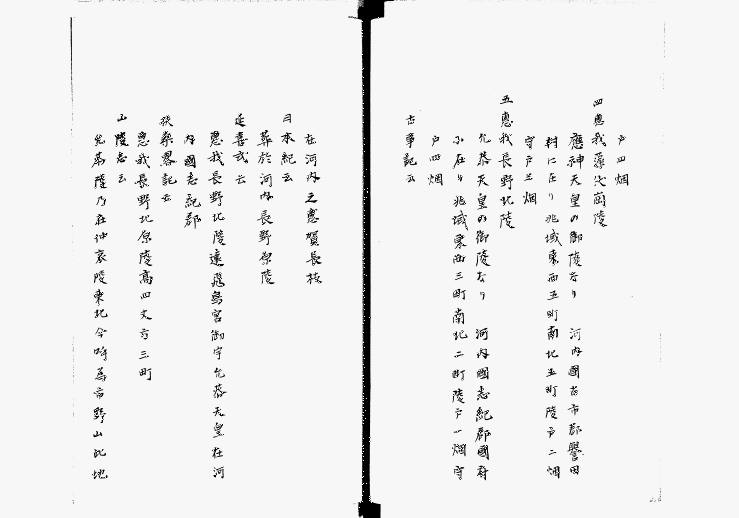 戸四烟
四惠我藻伏崗陵
應神天皇の御陵なり　河内國古市郡譽田
村に在り兆域東西五町南北五町陵戸二烟
守戸三烟
五惠我長野北陵
允恭天皇の御陵なり　河内國志紀郡國府
に在り兆域東西三町南北二町陵戸一烟守
戸四烟
古事記云
在河内之惠賀長枝
日本紀云
葬於河内長野原陵
延喜式云
惠我長野北陵遠飛鳥宮御宇允恭天皇在河
内國志紀郡
扶桑畧記云
惠我長野北原陵高四丈方三町
山陵志云
允恭陵乃在仲哀陵東北今呼爲市野山此地